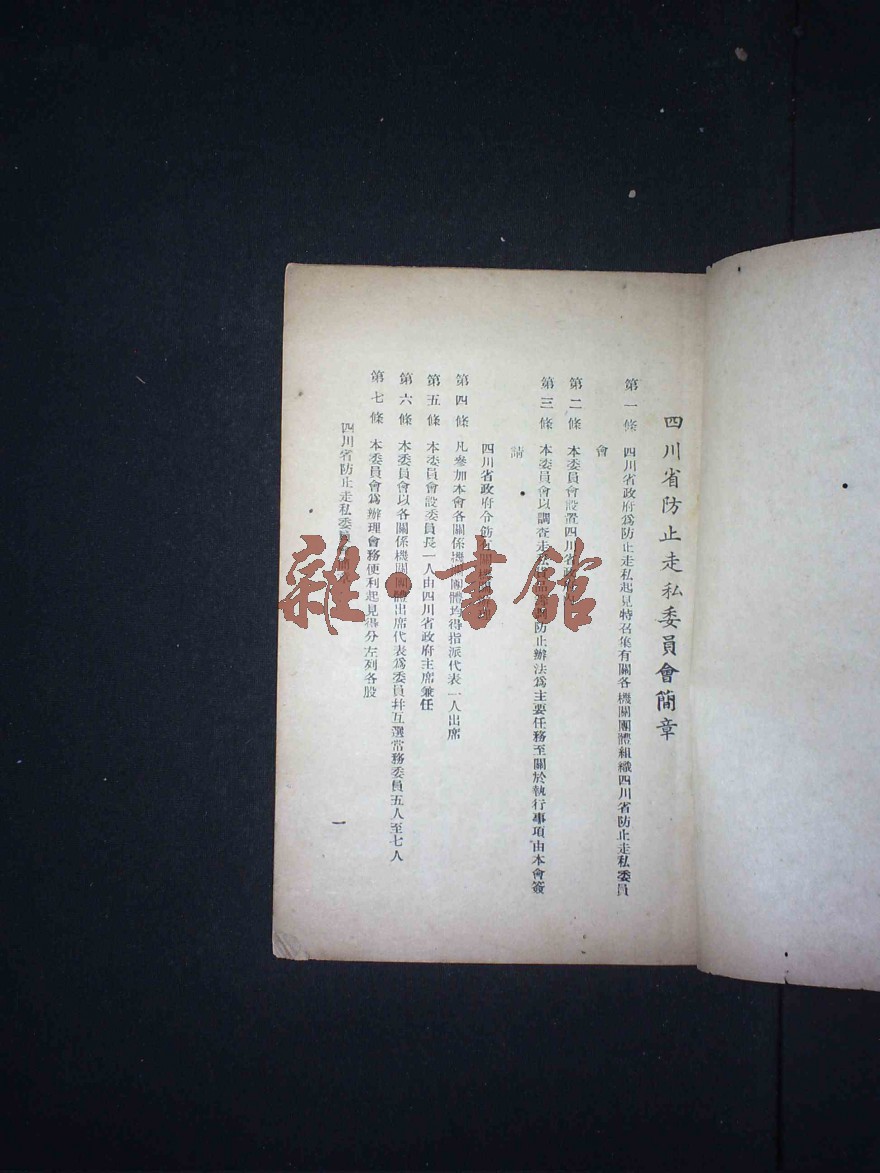 四川省防止走私委員會簡章
第一條　四川省政府爲防止走私起見特召集有關各機關團體組織四川省防止走私委員
會
第二條　本委員會設置四川省政府
第三條　本委員會以調查走私防止辦法爲主要任務至關於執行事項由本會簽
請
四川省政府令飭
第四條　凡參加本會各關係機關團體均得指派代表一人出席
第五條　本委員會設委員長一人由四川省政府主席兼任
第六條　本委員會以各關係機關團體出席代表爲委員幷互選常務委員五人至七人
第七條　本委員會爲辦理會務便利起見得分左列各股
四川省防止走私委員會
一
雜·書館